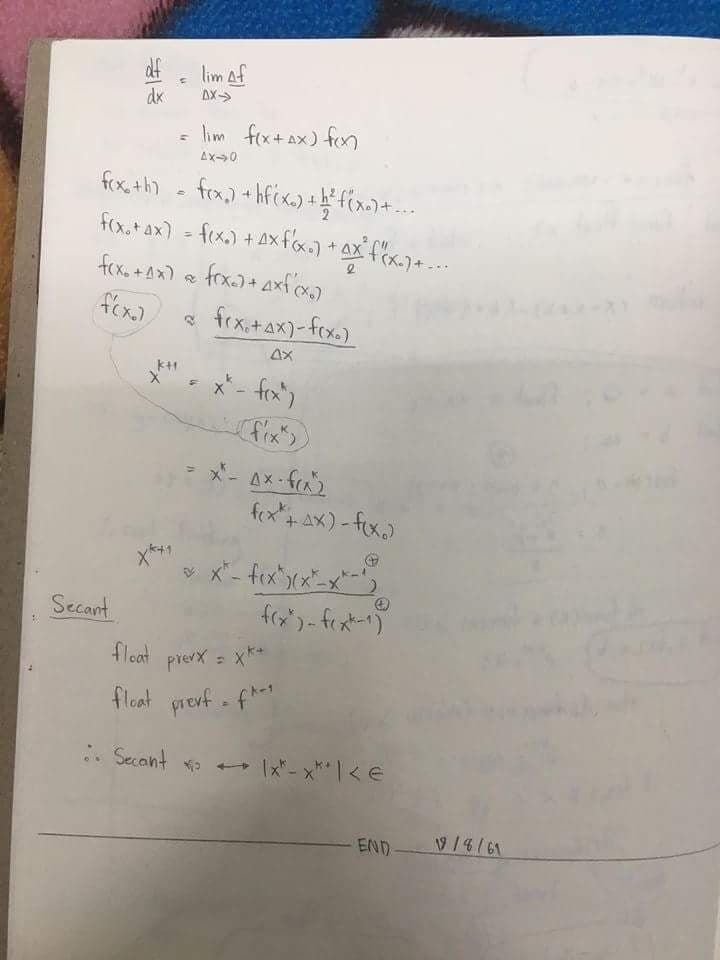 df/dx = lim Δf
Δx→
= lim f(x+Δx) f(x)
Δx→0
f(x₀+h) = f(x₀) + hf'(x₀) + h²/2 f''(x₀) + ...
f(x₀+Δx) = f(x₀) + Δx f'(x₀) + Δx²/2 f''(x₀) + ...
f(x₀+Δx) ≈ f(x₀) + Δxf'(x₀)
f'(x₀) ≈ (f(x₀+Δx) - f(x₀))/Δx
xᵏ⁺¹ = xᵏ - f(xᵏ)
f'(xᵏ)
= xᵏ - (Δx · f(xᵏ))/(f(xᵏ + Δx) - f(x₀))
xᵏ⁺¹ ≈ xᵏ - (f(xᵏ)(xᵏ - xᵏ⁻¹)⊕)/(f(xᵏ) - f(xᵏ⁻¹)⊕)
Secant
float prevx = xᵏ⁺
float prevf = fᵏ⁻¹
∴ Secant ↔ |xᵏ - xᵏ⁺| < ∈
END /8/61